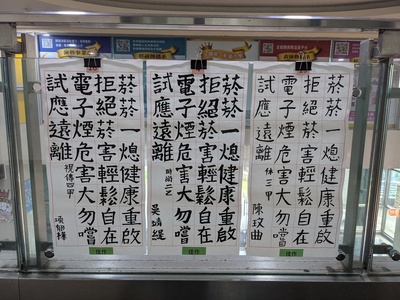 菸菸一熄健康重啟
拒絕菸害輕鬆自在
電子煙危害大勿嚐
試應遠離
休三甲
陳玟曲
佳作
菸菸一熄健康重啟
拒絕菸害輕鬆自在
電子煙危害大勿嚐
試應遠離
時尚二乙
吳靖緹
佳作
菸菸一熄健康重啟
拒絕菸害輕鬆自在
電子煙危害大勿嚐
試應遠離
視傳四甲
佳作